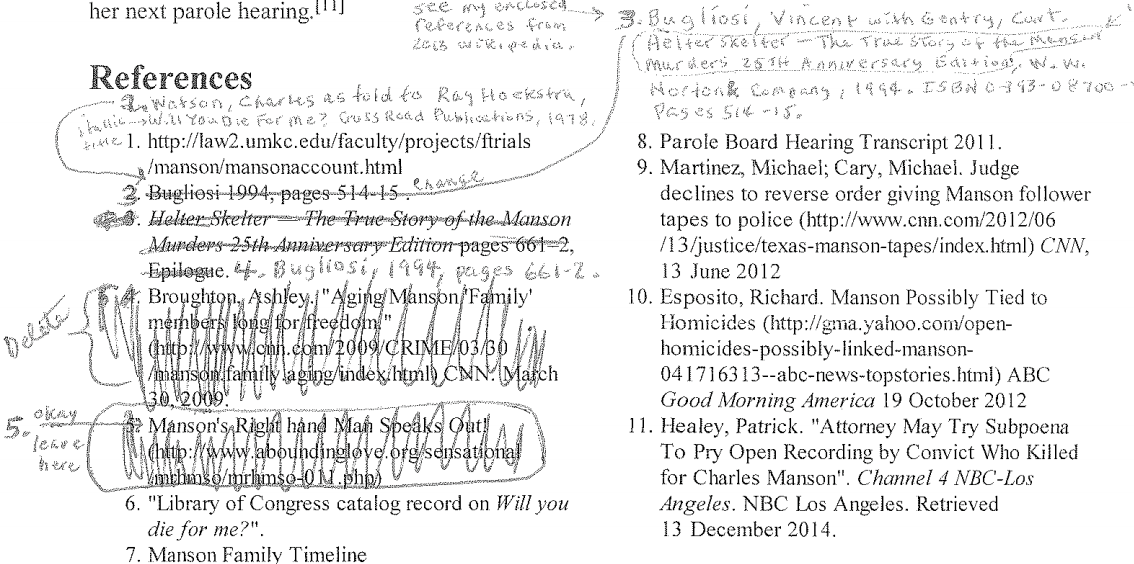 her next parole hearing.[11]
see my enclosed
references from
2013 wikipedia.
References
2. Watson, Charles as told to Ray Hoekstra,
italic Will You Die For Me? Cross Road Publications, 1978.
title
1. http://law2.umkc.edu/faculty/projects/ftrials
/manson/mansonaccount.html
2. Bugliosi 1994, pages 514-15 . change
3. Helter Skelter — The True Story of the Manson
Murders 25th Anniversary Edition pages 661–2,
Epilogue. 4. Bugliosi, 1994, pages 661-2.
Delete
4. Broughton, Ashley. "Aging Manson 'Family'
members long for freedom."
(http://www.cnn.com/2009/CRIME/03/30
/manson.family.aging/index.html) CNN. March
30, 2009.
5. okay
leave
here
5. Manson's Right hand Man Speaks Out!
(http://www.aboundinglove.org/sensational
/mrhmso/mrhmso-011.php)
6. "Library of Congress catalog record on Will you
die for me?".
7. Manson Family Timeline
3. Bugliosi, Vincent with Gentry, Curt.
Helter Skelter — The True Story of the Manson
Murders 25TH Anniversary Edition, W. W.
Norton & Company, 1994. ISBN 0-393-08700-
Pages 514-15.
8. Parole Board Hearing Transcript 2011.
9. Martinez, Michael; Cary, Michael. Judge
declines to reverse order giving Manson follower
tapes to police (http://www.cnn.com/2012/06
/13/justice/texas-manson-tapes/index.html) CNN,
13 June 2012
10. Esposito, Richard. Manson Possibly Tied to
Homicides (http://gma.yahoo.com/open-
homicides-possibly-linked-manson-
041716313--abc-news-topstories.html) ABC
Good Morning America 19 October 2012
11. Healey, Patrick. "Attorney May Try Subpoena
To Pry Open Recording by Convict Who Killed
for Charles Manson". Channel 4 NBC-Los
Angeles. NBC Los Angeles. Retrieved
13 December 2014.